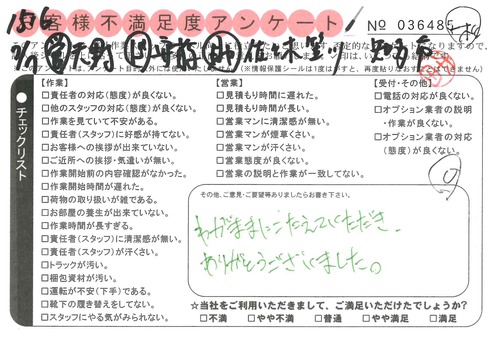 お客様不満足度アンケート
No 036485
チェックリスト
【作業】
□責任者の対応(態度)が良くない。
□他のスタッフの対応(態度)が良くない。
□作業を見ていて不安がある。
□責任者(スタッフ)に好感が持てない。
□お客様への挨拶が出来ていない。
□ご近所への挨拶・気遣いが無い。
□作業開始前の内容確認がなかった。
□作業開始時間が遅れた。
□荷物の取り扱いが雑である。
□お部屋の養生が出来ていない。
□作業時間が長すぎる。
□責任者(スタッフ)に清潔感が無い。
□責任者(スタッフ)が汗くさい。
□トラックが汚い。
□梱包資材が汚い。
□運転が不安(下手)である。
□靴下の履き替えをしてない。
□スタッフにやる気がみられない。
【営業】
□見積もり時間に遅れた。
□見積もり時間が長い。
□営業マンに清潔感が無い。
□営業マンが煙草くさい。
□営業マンが汗くさい。
□営業態度が良くない。
□営業の説明と作業が一致してない。
【受付・その他】
□電話の対応が良くない。
□オプション業者の説明
・作業が良くない。
□オプション業者の対応
(態度)が良くない。
その他、ご意見・ご要望等ありましたらお書き下さい。
わがままにこたえていただき、
ありがとうございました。
☆当社をご利用いただきまして、ご満足いただけたでしょうか?
□不満 □やや不満 □普通 □やや満足 □満足